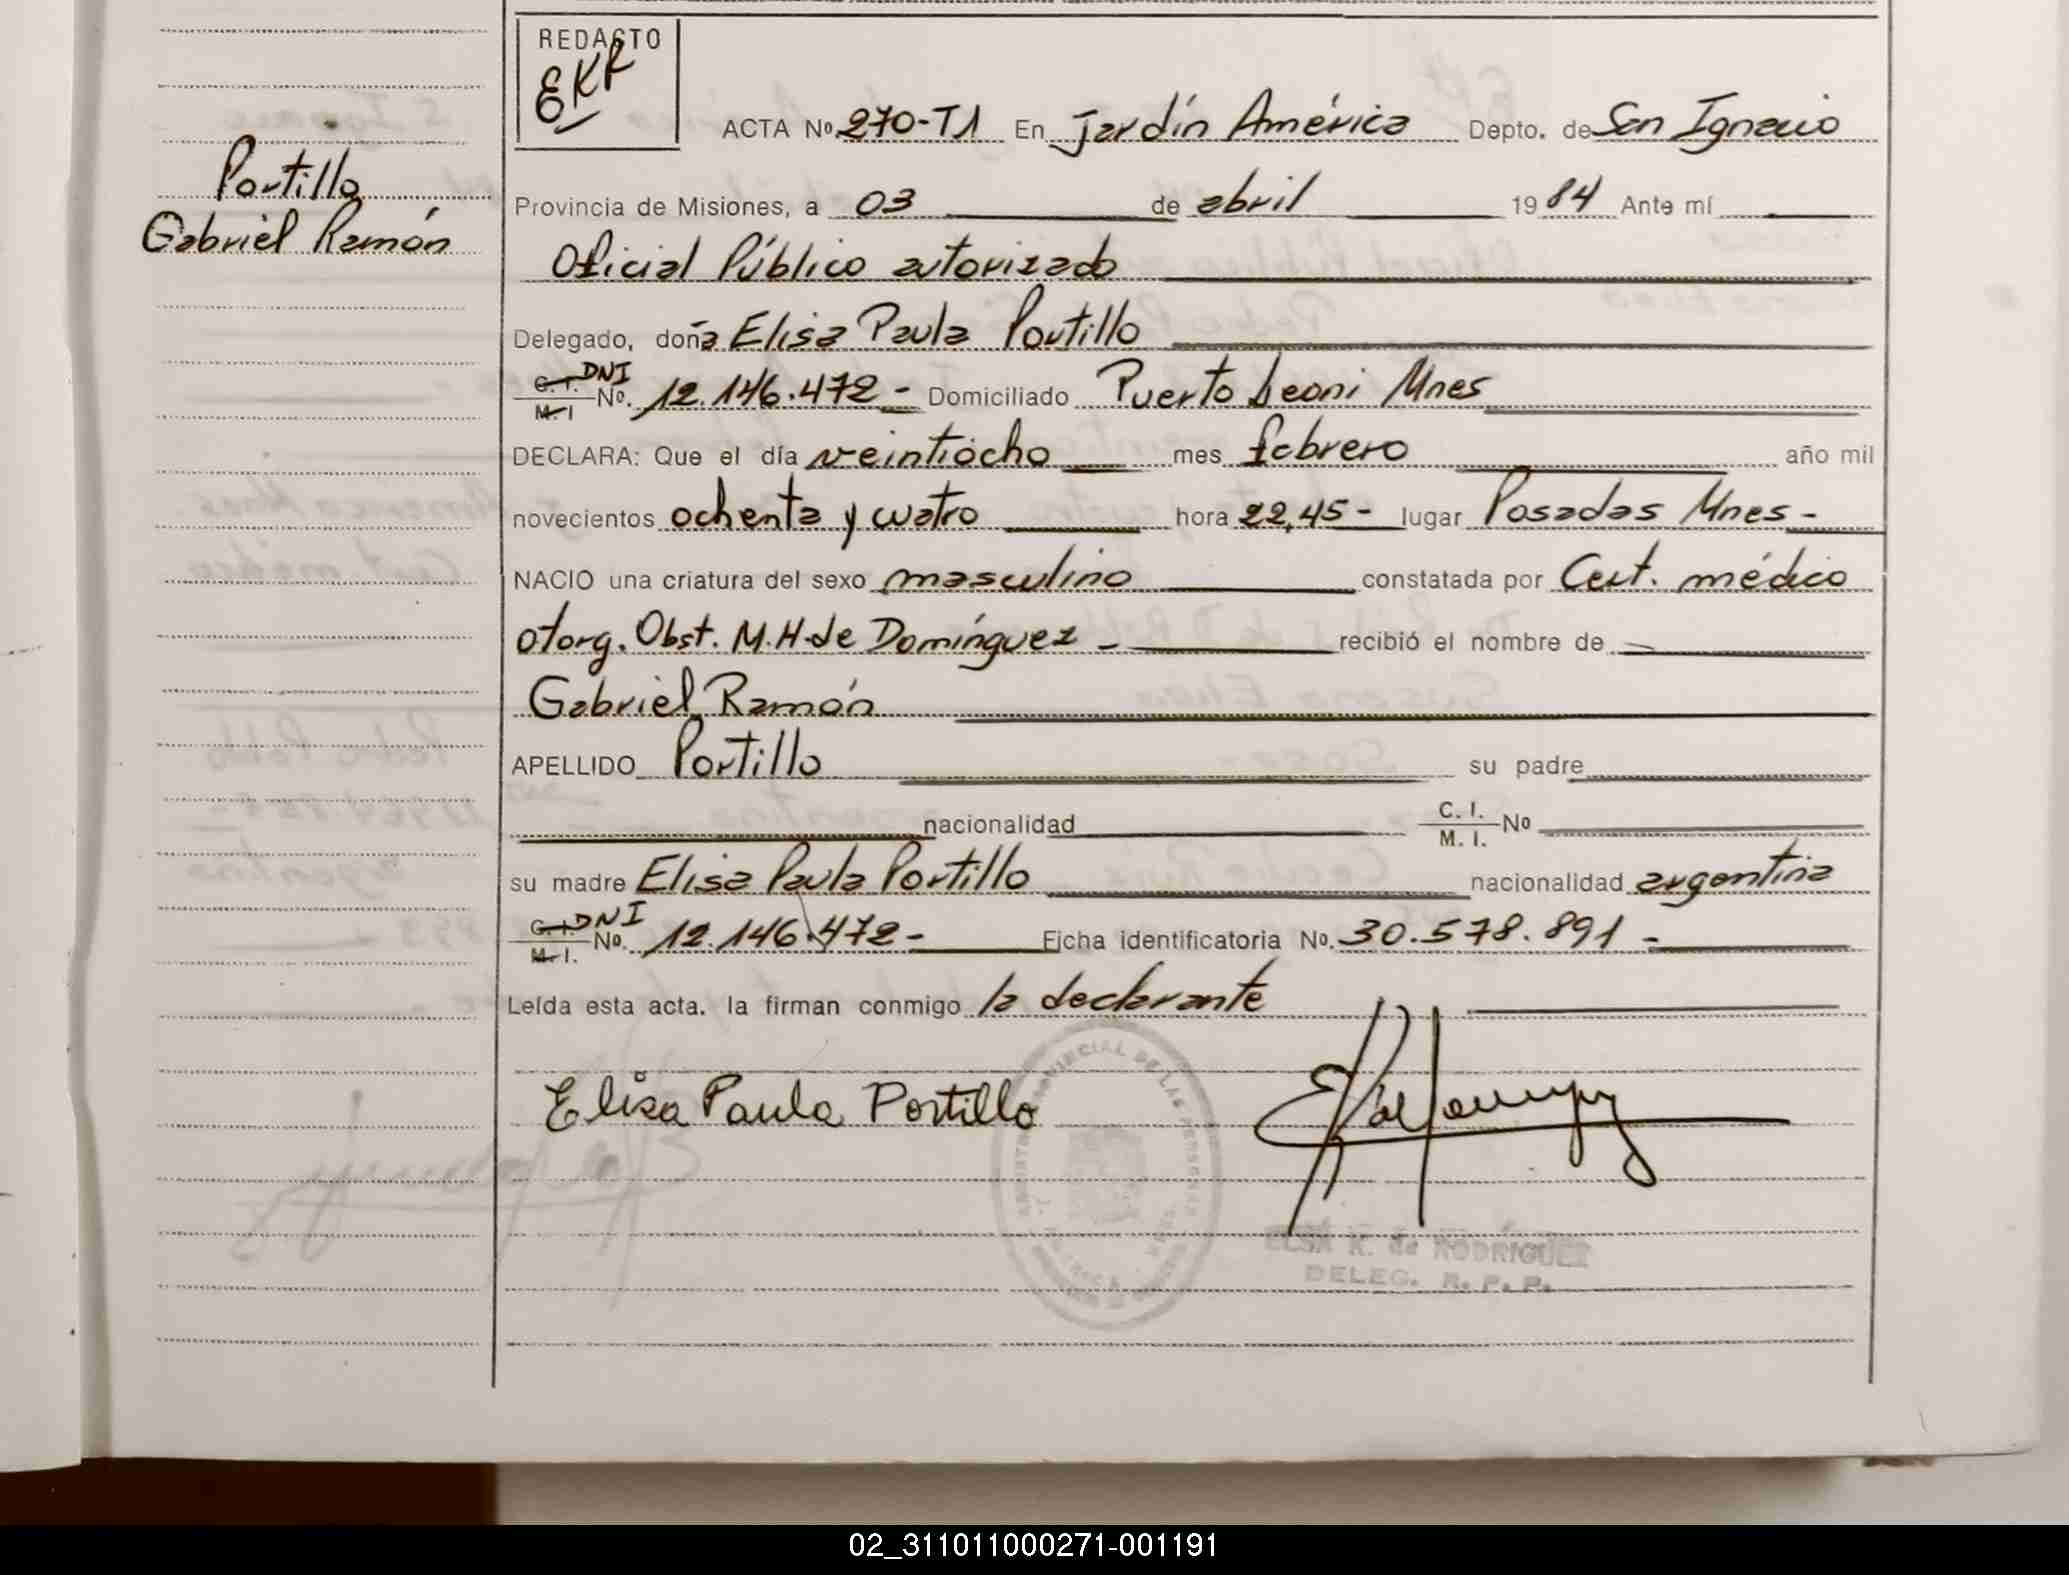 REDACTO
EKR
ACTA Nº 270-T1 En Jardín América Depto. de San Ignacio
Portillo
Gabriel Ramón
Provincia de Misiones, a 03 de abril 1984 Ante mí
Oficial Público autorizado
Delegado, doña Elisa Paula Portillo
C. I. DNI
M. I Nº. 12.146.472 - Domiciliado Puerto Leoni Mnes
DECLARA: Que el día veintiocho mes febrero año mil
novecientos ochenta y cuatro hora 22,45 - lugar Posadas Mnes -
NACIO una criatura del sexo masculino constatada por Cert. médico
otorg. Obst. M.H. de Domínguez - recibió el nombre de
Gabriel Ramón
APELLIDO Portillo su padre
nacionalidad C. I. M. I. Nº
su madre Elisa Paula Portillo nacionalidad argentina
C. I. DNI
M. I. Nº. 12.146.472 - Ficha identificatoria Nº. 30.578.891 -
Leída esta acta, la firman conmigo la declarante
Elisa Paula Portillo
PROVINCIAL DE LAS PERSONAS
ELSA K. de RODRIGUEZ
DELEG. R. P. P.
02_311011000271-001191